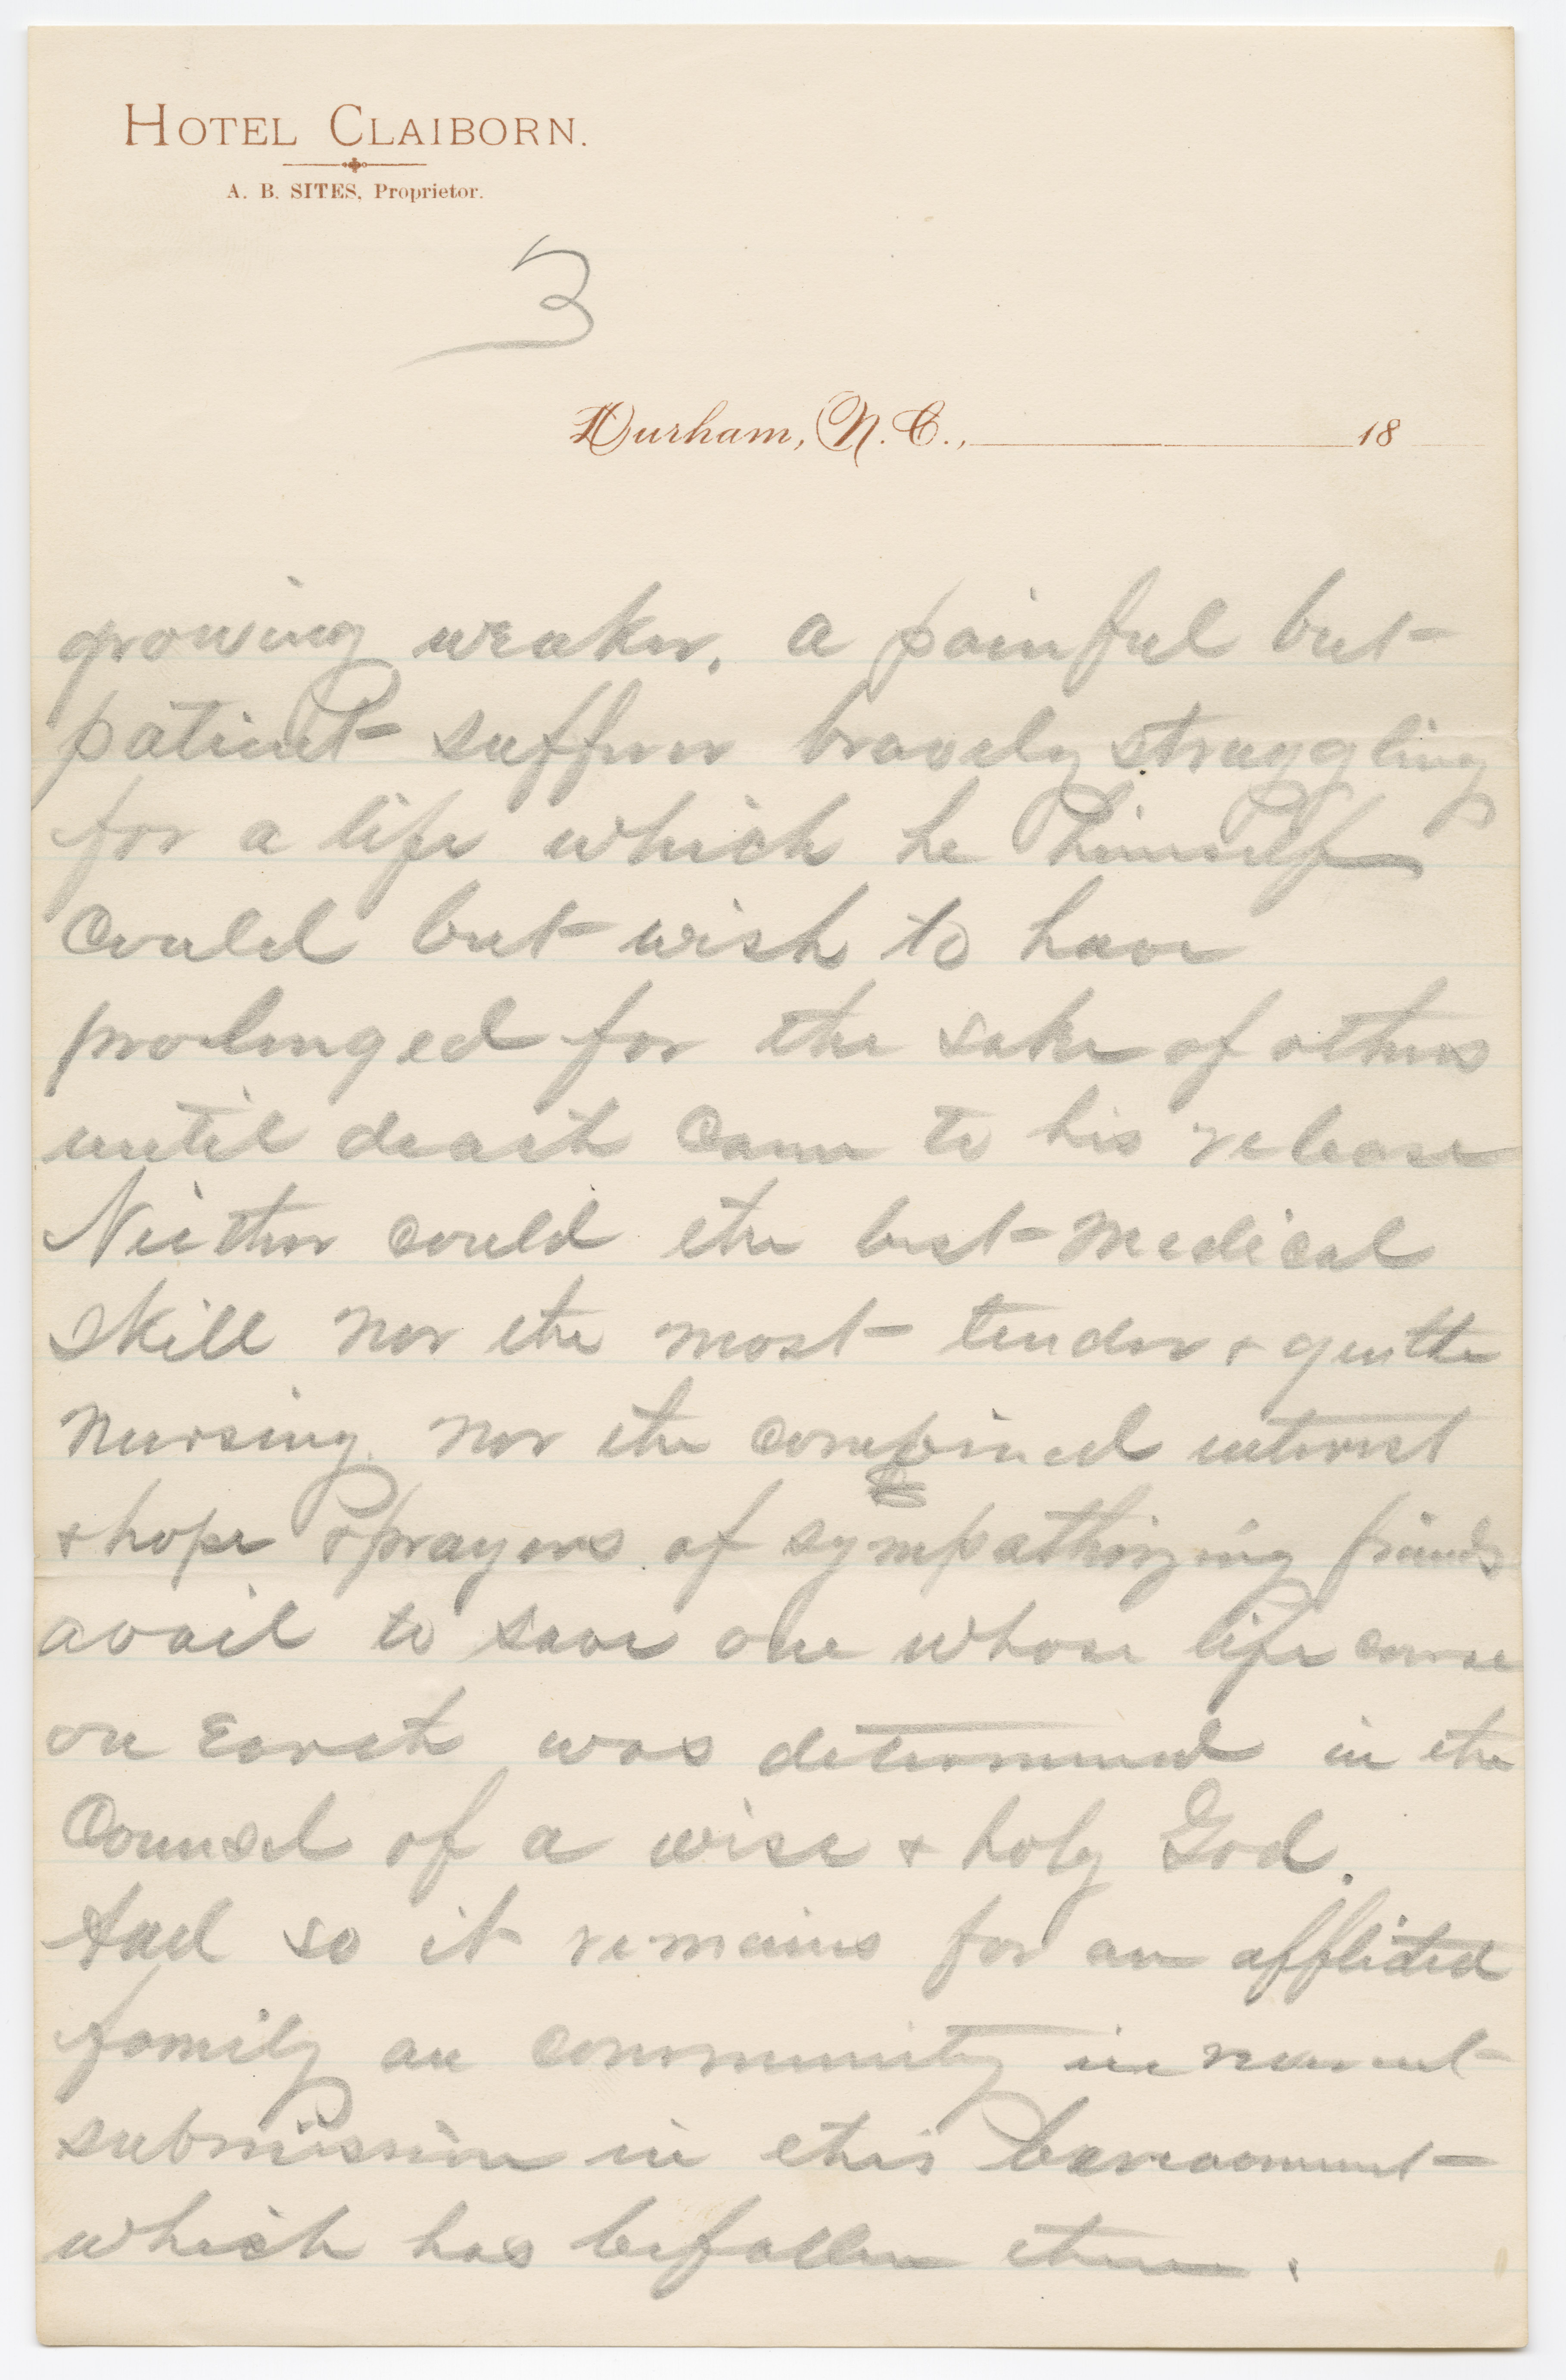 HOTEL CLAIBORN.
A. B. SITES, Proprietor.
3
Durham, N. C., 18
growing weaker, a painful but
patient sufferer bravely struggling
for a life which he himself
could but wish to have
prolonged for the sake of others
until death came to his release
Neither could the best medical
skill nor the most tender & gentle
nursing nor the combined interest
& hope & prayers of sympathizing friends
avail to save one whose life course
on Earth was determined in the
Counsel of a wise & holy God.
And so it remains for an afflicted
family an community in reverent
submission in this bereavement
which has befallen them.